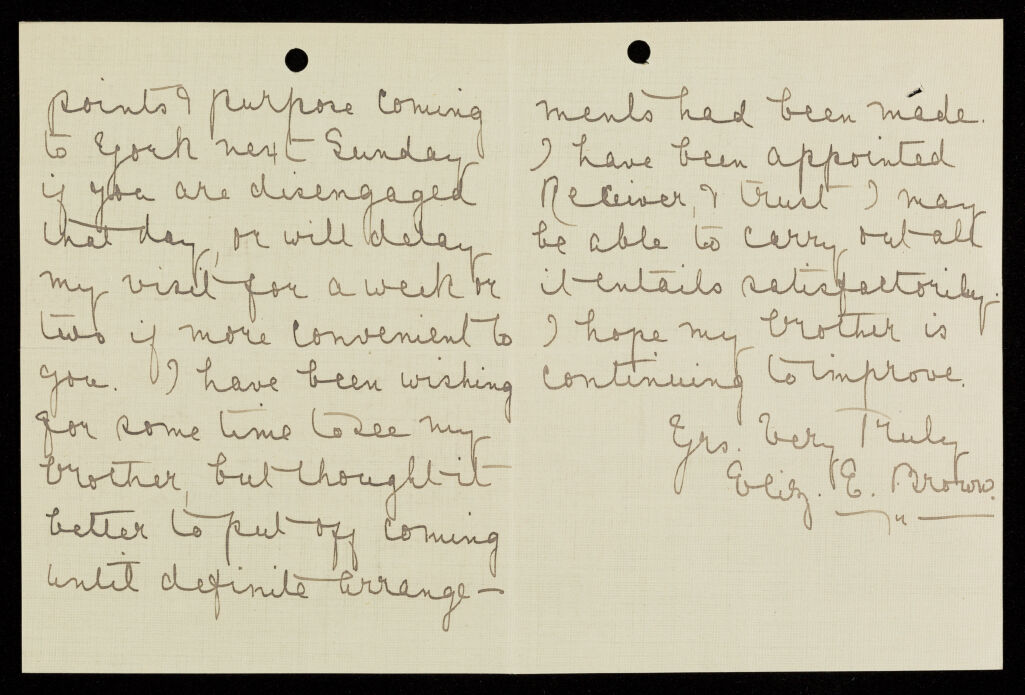 points I purpose coming
to York next Sunday
if you are disengaged
that day, or will delay
my visit for a week or
two if more convenient to
you. I have been wishing
for some time to see my
brother, but thought it
better to put off coming
until definite arrange-
ments had been made.
I have been appointed
Receiver, & trust I may
be able to carry out all
it entails satisfactorily.
I hope my brother is
continuing to improve.
Yrs. Very Truly
Eliz. E. Brown.